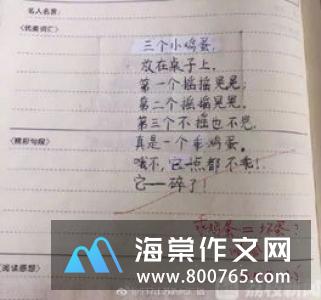 名人名言:
<优美词汇>
三个小鸡蛋,
放在桌子上,
第一个摇摇晃晃;
第二个摇摇晃晃,
第三个不摇也不晃,
<精彩句段>
真是一个乖鸡蛋。
哦不,它一点都不乖!
它——碎了!
乖鸡蛋=坏蛋?
海棠作文网
www.800765.com
<阅读感想>